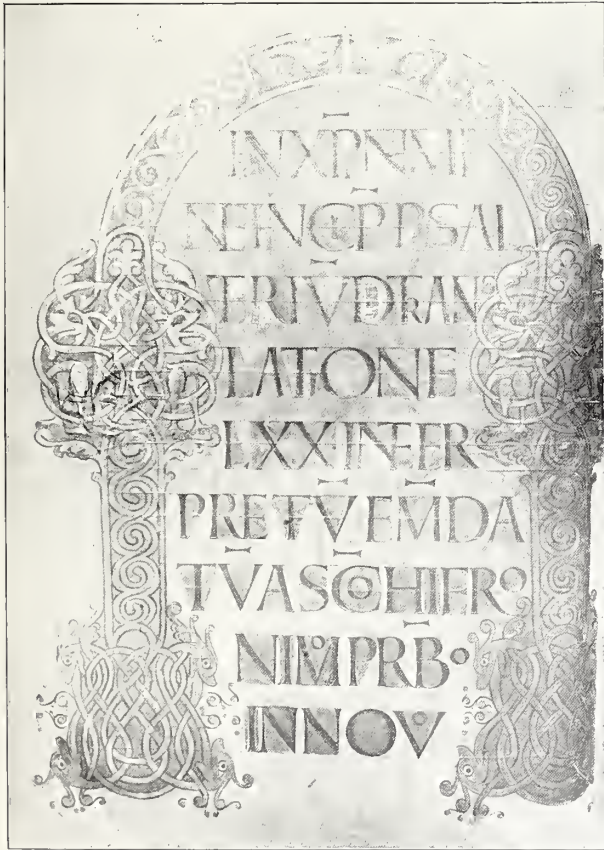 INXPI NMI
NEINCP PSAL
TERIVDTRAN
LATIONE
LXXINTER
PRETVEMDA
TVASCOHIERO
NIMOPRBO
INNOVO